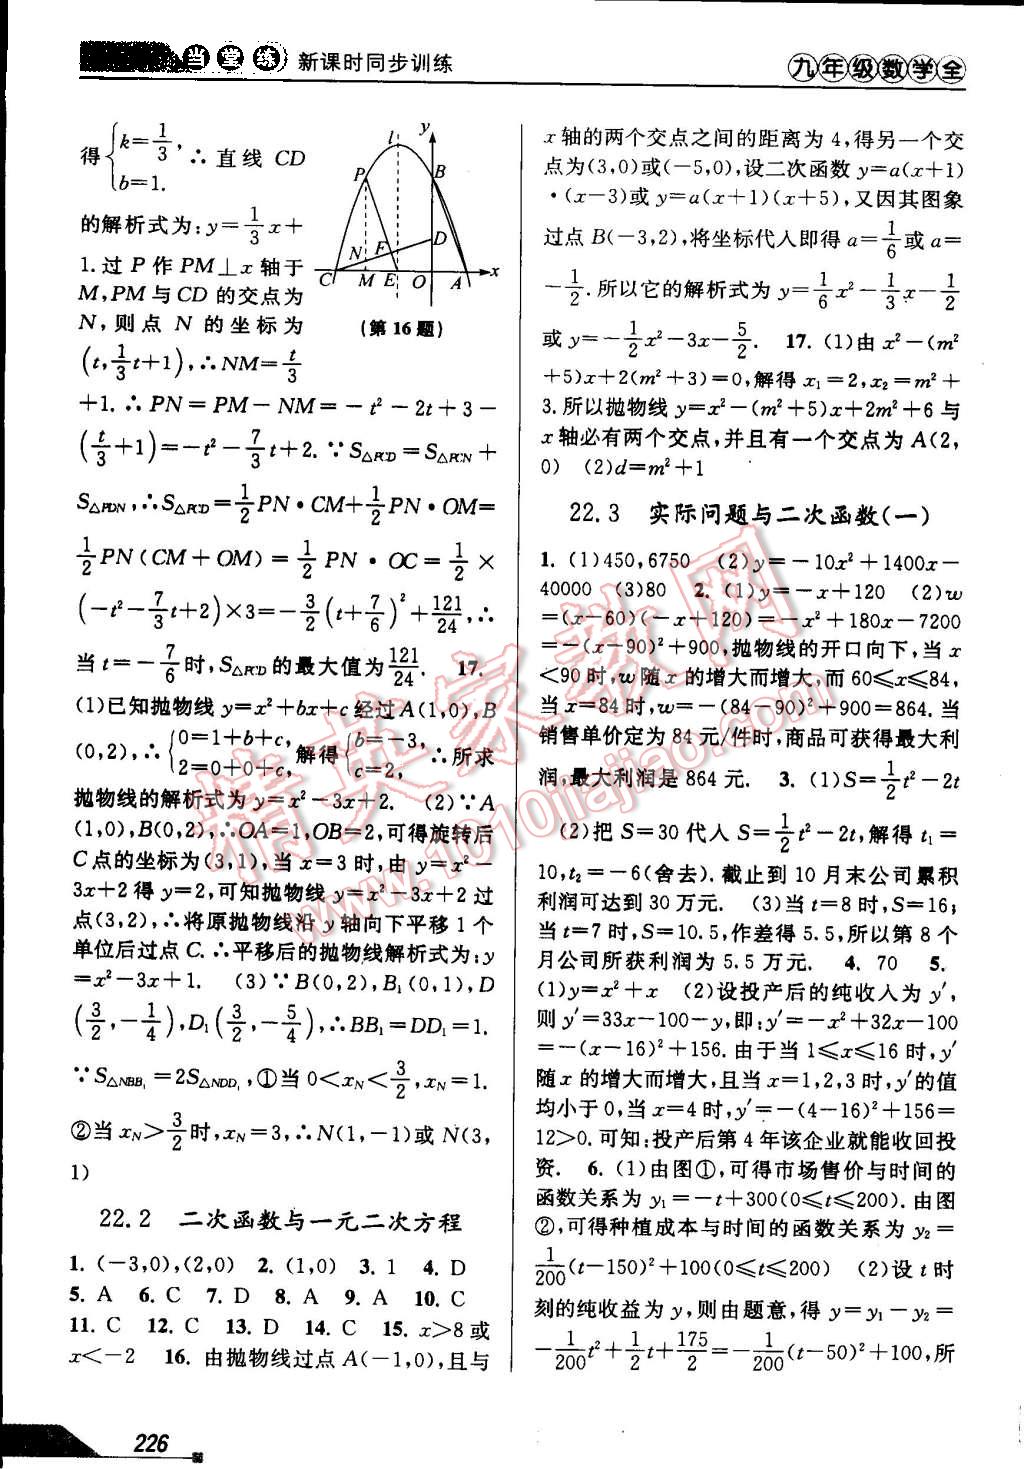 当堂练 新课时同步训练
九年级数学全
得{k=1/3, b=1. ∴直线 CD
的解析式为:y=1/3x+
1.过 P 作 PM⊥x 轴于
M,PM 与 CD 的交点为
N,则点 N 的坐标为
(t,1/3t+1),∴NM=t/3
+1.∴PN=PM-NM=-t²-2t+3-
(t/3+1)=-t²-7/3t+2.∵S△PCD=S△PCN+
S△PDN,∴S△PCD=1/2PN·CM+1/2PN·OM=
1/2PN(CM+OM)=1/2PN·OC=1/2×
(-t²-7/3t+2)×3=-3/2(t+7/6)²+121/24,∴
当 t=-7/6时,S△PCD的最大值为121/24. 17.
(1)已知抛物线 y=x²+bx+c 经过 A(1,0),B
(0,2),∴{0=1+b+c, 2=0+0+c,解得{b=-3, c=2,∴所求
抛物线的解析式为 y=x²-3x+2. (2)∵A
(1,0),B(0,2),∴OA=1,OB=2,可得旋转后
C 点的坐标为(3,1),当 x=3 时,由 y=x²-
3x+2 得 y=2,可知抛物线 y=x²-3x+2 过
点(3,2),∴将原抛物线沿 y 轴向下平移 1 个
单位后过点 C.∴平移后的抛物线解析式为:y
=x²-3x+1. (3)∵B(0,2),B₁(0,1),D
(3/2,-1/4),D₁(3/2,-5/4),∴BB₁=DD₁=1.
∵S△NBB₁=2S△NDD₁,①当 0<xN<3/2,xN=1.
②当 xN>3/2时,xN=3,∴N(1,-1)或 N(3,
1)
l y P B D N F C M E O A x
(第 16 题)
22.2 二次函数与一元二次方程
1. (-3,0),(2,0) 2. (1,0) 3. 1 4. D
5. A 6. C 7. D 8. A 9. A 10. C
11. C 12. C 13. D 14. C 15. x>8 或
x<-2 16. 由抛物线过点 A(-1,0),且与
x 轴的两个交点之间的距离为 4,得另一个交
点为(3,0)或(-5,0),设二次函数 y=a(x+1)
·(x-3)或 y=a(x+1)(x+5),又因其图象
过点 B(-3,2),将坐标代人即得 a=1/6或 a=
-1/2.所以它的解析式为 y=1/6x²-1/3x-1/2
或 y=-1/2x²-3x-5/2. 17. (1)由 x²-(m²
+5)x+2(m²+3)=0,解得 x₁=2,x₂=m²+
3.所以抛物线 y=x²-(m²+5)x+2m²+6 与
x 轴必有两个交点,并且有一个交点为 A(2,
0) (2)d=m²+1
22.3 实际问题与二次函数(一)
1. (1)450,6750 (2)y=-10x²+1400x-
40000 (3)80 2. (1)y=-x+120 (2)w
=(x-60)(-x+120)=-x²+180x-7200
=-(x-90)²+900,抛物线的开口向下,当 x
<90 时,w 随 x 的增大而增大,而 60≤x≤84,
当 x=84 时,w=-(84-90)²+900=864.当
销售单价定为 84 元/件时,商品可获得最大利
润,最大利润是 864 元. 3. (1)S=1/2t²-2t
(2)把 S=30 代人 S=1/2t²-2t,解得 t₁=
10,t₂=-6(舍去).截止到 10 月末公司累积
利润可达到 30 万元. (3)当 t=8 时,S=16;
当 t=7 时,S=10.5,作差得 5.5,所以第 8 个
月公司所获利润为 5.5 万元. 4. 70 5.
(1)y=x²+x (2)设投产后的纯收入为 y′,
则 y′=33x-100-y,即:y′=-x²+32x-100
=-(x-16)²+156.由于当 1≤x≤16 时,y′
随 x 的增大而增大,且当 x=1,2,3 时,y′的值
均小于 0,当 x=4 时,y′=-(4-16)²+156=
12>0.可知:投产后第 4 年该企业就能收回投
资. 6. (1)由图①,可得市场售价与时间的
函数关系为 y₁=-t+300(0≤t≤200).由图
②,可得种植成本与时间的函数关系为 y₂=
1/200(t-150)²+100(0≤t≤200) (2)设 t 时
刻的纯收益为 y,则由题意,得 y=y₁-y₂=
-1/200t²+1/2t+175/2=-1/200(t-50)²+100,所
226
精英家教网
www.1010jiajiao.com